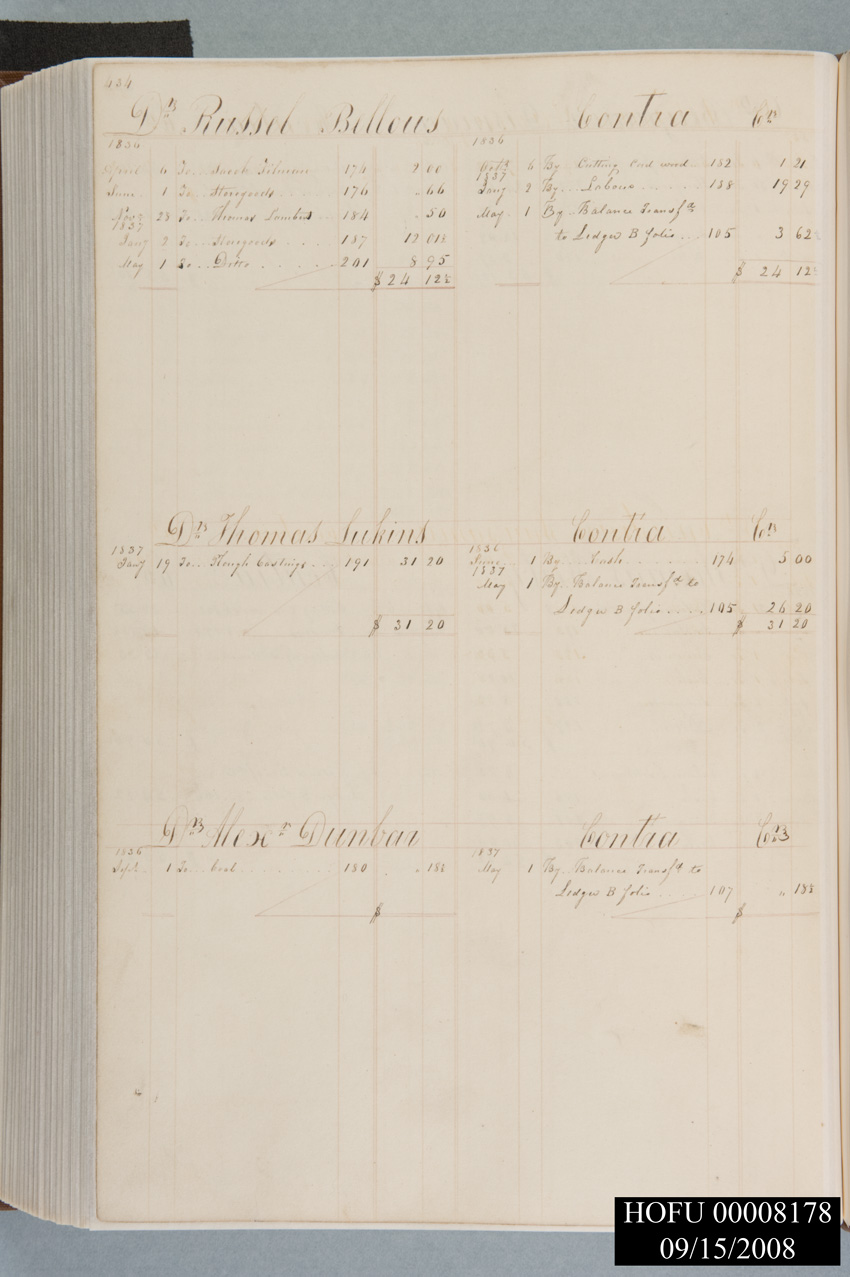 434
Drs Russel Bellows Contra Crs
1836
April 6 To.. Jacob Tilman 174 2 00
June 1 To.. Storegoods 176 " 66
Novr 28 To.. Thomas Lambert 184 " 50
1837
Jany 2 To.. Storegoods 187 12 01½
May 1 To.. Ditto 201 8 95
$ 24 12½
1836
Octr 6 By.. Cutting Cord wood.. 182 1 21
1837
Jany 2 By... Labour 188 19 29
May 1 By.. Balance Transfd
to Ledger B folio... 105 3 62½
$ 24 12½
Drs Thomas Lukins Contra Crs
1837
Jany 19 To... Rough Castings... 191 31 20
$ 31 20
1836
June.. 1 By... Cash 174 5 00
1837
May 1 By.. Balance Transfd to
Ledger B folio.... 105 26 20
$ 31 20
Drs Alexr Dunbar Contra Crs
1836
Sept. 1 To... Coal 180 " 18½
$
1837
May 1 By.. Balance Transfd to
Ledger B folio 107 " 18½
$
HOFU 00008178
09/15/2008